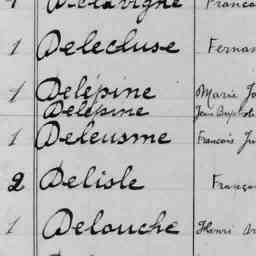 1 Delavigne
1 Delecluse Fernan
1 Delépine Marie Jo
Delépine Jean Baptiste
1 Deleusme Francois Ju
2 Delisle França
1 Delouche Henri